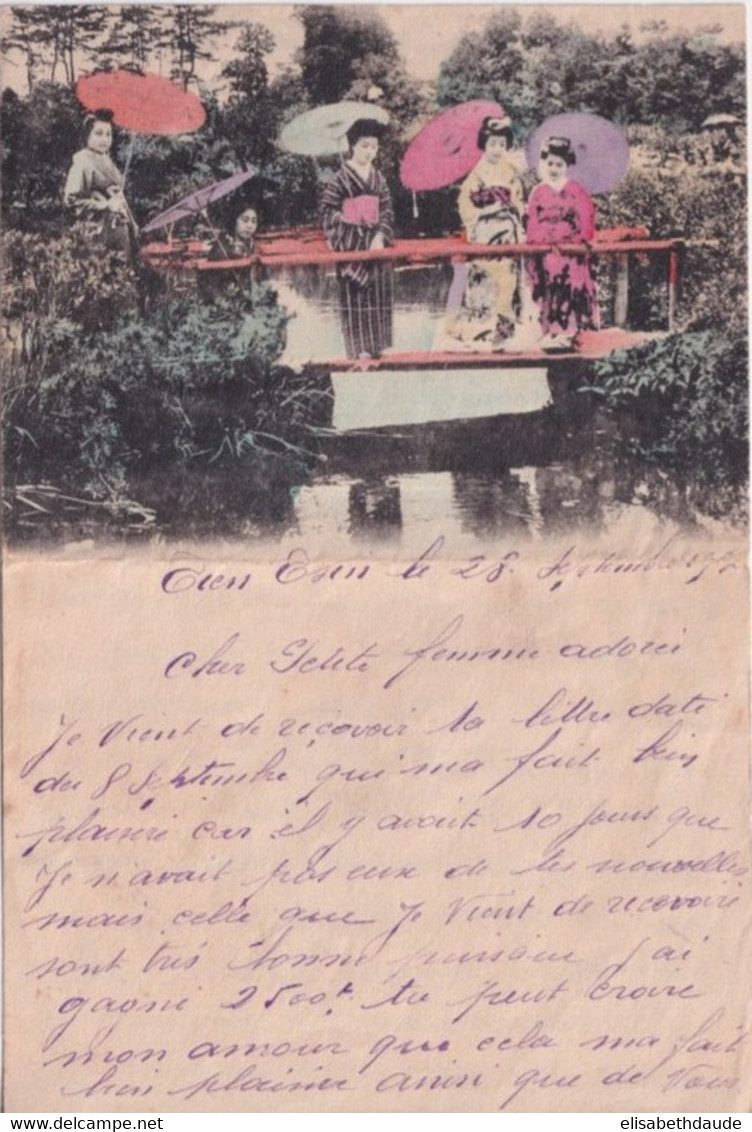 Tien Tsin le 28 Septembre
Cher Petite femme adorée
Je Vient de reçevoir ta lettre daté
du 8 Septembre qui ma fait bien
plaisire car il y avait 10 jours que
Je n'avait pas eux de tes nouvelles
mais celle que Je Vient de recevoire
sont très bonne puisque j'ai
gagné 2500f tu peut croire
mon amour que cela ma fait
bien plaisire ainsi que de Vous
elisabethdaude